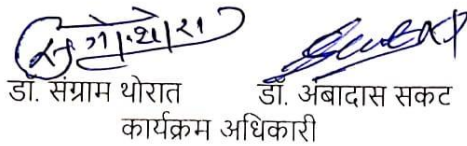 डॉ. संग्राम थोरात डॉ. अंबादास सकट
कार्यक्रम अधिकारी